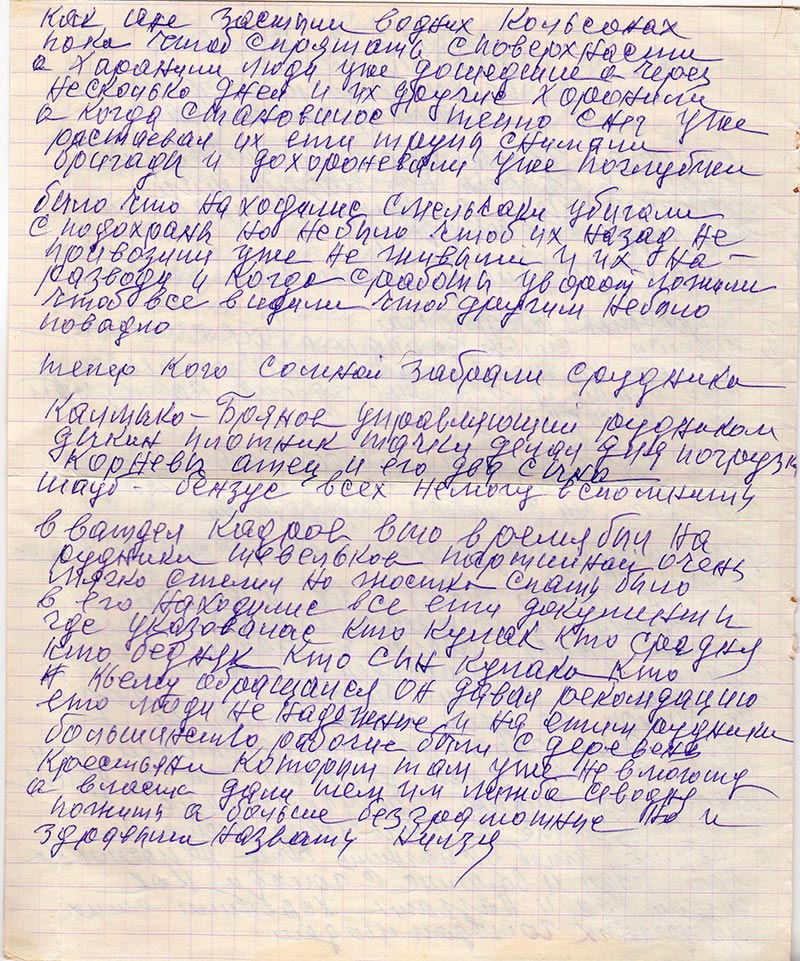 как шли застыли водних Кальсонах
пока чтоб спрятать споверхности
а Харанили люди уже дошедшие а через
несколько дней и их другие Хоронили
а когда становилос тепло снег уже
растаевал их ети трупи снимали
бригади и дохороневали уже поглубже
било что находилис смельчаки убигали
с подохрани но небило чтоб их назад не
привозили уже не живими и их на-
разводи и когда сработи у ворот ложили
чтоб все видили чтоб другим небило
повадно
тепер Кого сомной забрали срудника
Калмыко-Брянов управляющий рудником
дикин плотник тачки делал для погрузк
Корневи атец и его два сина
шауб - бензус всех немогу вспомнить
в ватдел Кадров вто время бил на
рудники Шевельков партийной очень
мягко стелил но жостко спать било
в его находилис все ети документи
где указовалас кто Кулак кто средня
кто бедняк кто син Кулака кто
Кьему обращался он давал рекомдацию
ето люди не надежние и на етим рудники
большинство рабочие били с деревень
Крестьяни Которим там уже невмоготу
а власти дали тем им хлеба сводну
пожить а больше безграмотние но и
здравими назвать нилзя